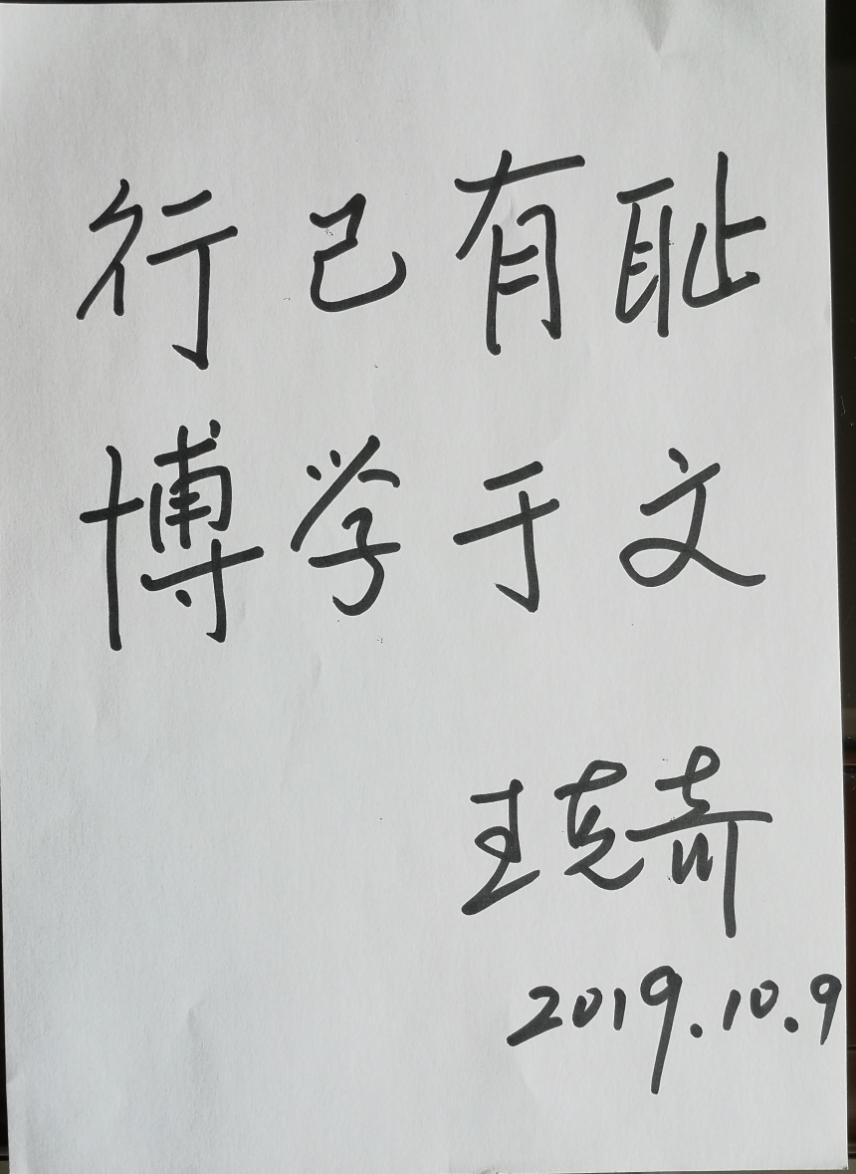 行己有耻
博学于文
王克奇
2019.10.9